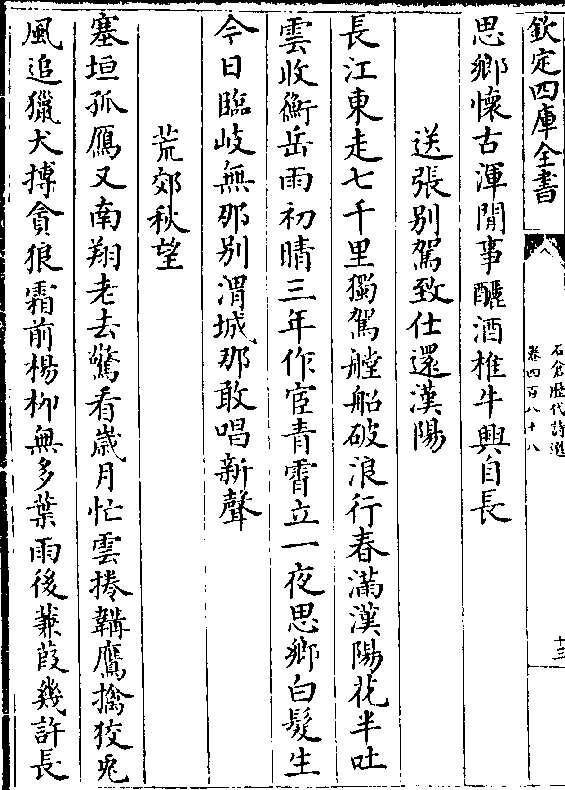 欽定四庫全書
石倉歴代詩選
卷四百八十八
十三
思鄉懷古渾閒事釃酒椎牛興自長
送張别駕致仕還漢陽
長江東走七千里獨駕艡船破浪行春滿漢陽花半吐
雲收衡岳雨初晴三年作宦青霄立一夜思鄉白髮生
今日臨岐無那别渭城那敢唱新聲
荒郊秋望
塞垣孤鴈又南翔老去驚看嵗月忙雲捲韝鷹擒狡兎
風追獵犬搏貪狼霜前楊柳無多葉雨後蒹葭幾許長